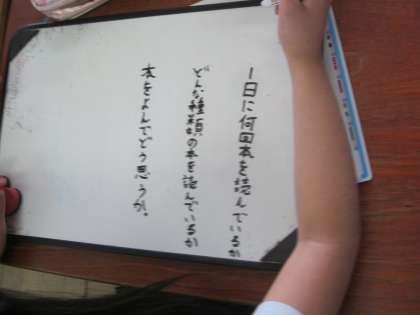 1日に何回本を読んでいるか
どんな種類の本を読んでいるか
本をよんでどう思うか。